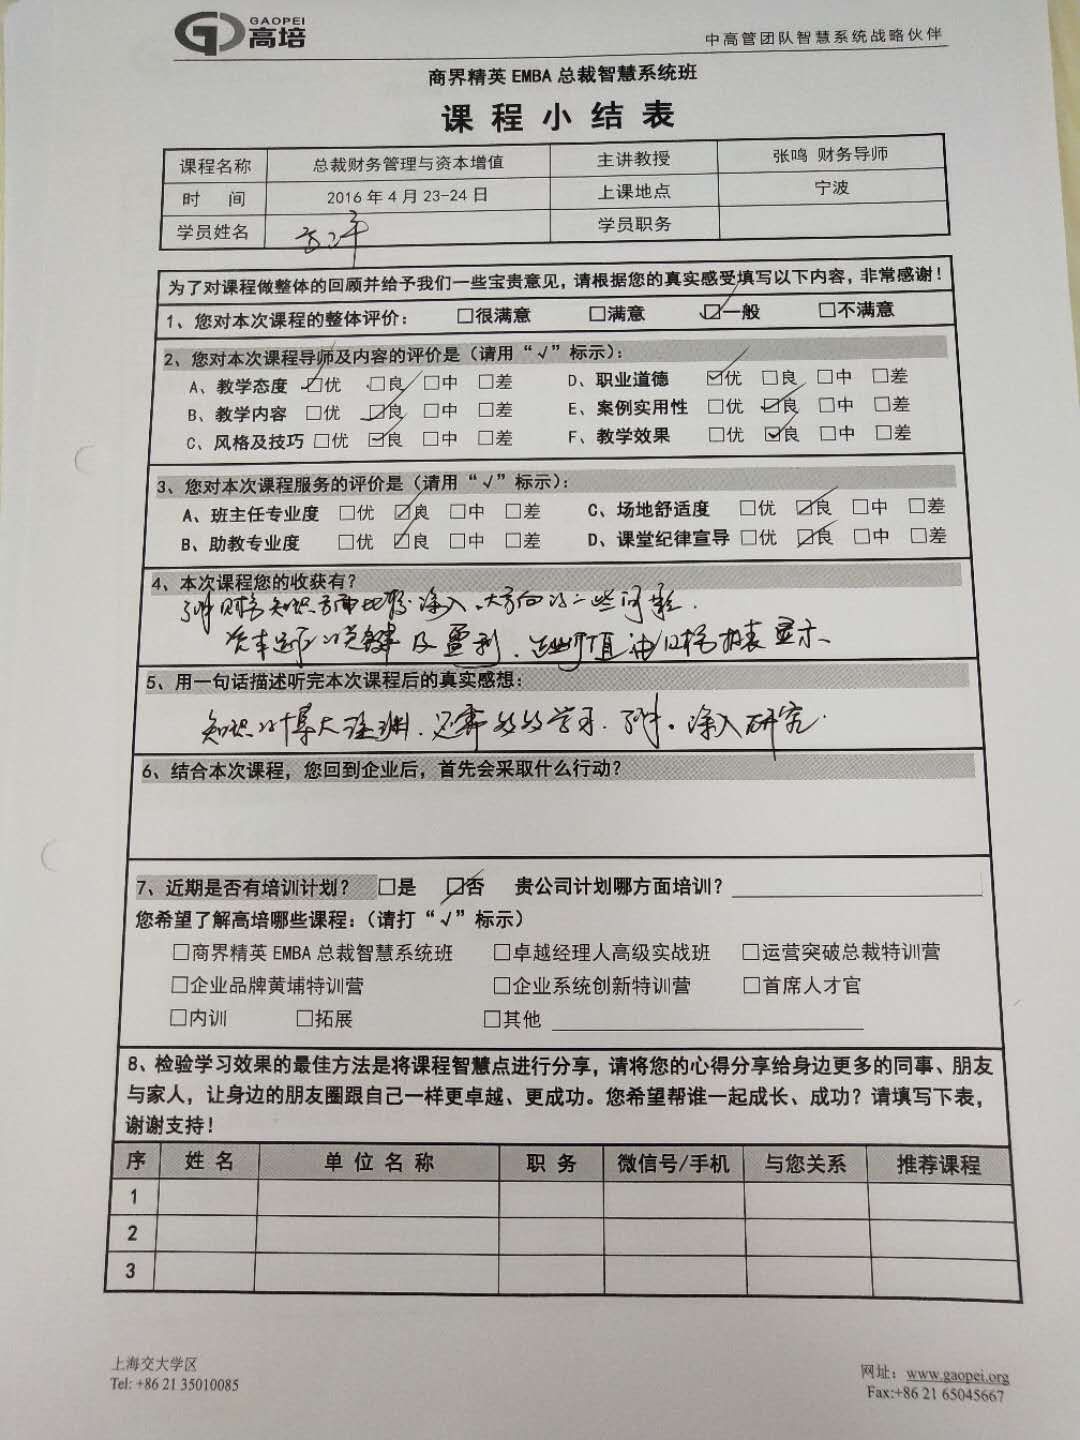 GAOPEI
高培
中高管团队智慧系统战略伙伴
商界精英 EMBA 总裁智慧系统班
课程小结表
课程名称 总裁财务管理与资本增值 主讲教授 张鸣 财务导师
时 间 2016 年 4 月 23-24 日 上课地点 宁波
学员姓名 学员职务
为了对课程做整体的回顾并给予我们一些宝贵意见，请根据您的真实感受填写以下内容，非常感谢！
1、您对本次课程的整体评价： □很满意 □满意 ☑一般 □不满意
2、您对本次课程导师及内容的评价是（请用“√”标示）：
A、教学态度 ☑优 □良 □中 □差 D、职业道德 ☑优 □良 □中 □差
B、教学内容 □优 ☑良 □中 □差 E、案例实用性 □优 ☑良 □中 □差
C、风格及技巧 □优 ☑良 □中 □差 F、教学效果 □优 ☑良 □中 □差
3、您对本次课程服务的评价是（请用“√”标示）：
A、班主任专业度 □优 ☑良 □中 □差 C、场地舒适度 □优 ☑良 □中 □差
B、助教专业度 □优 ☑良 □中 □差 D、课堂纪律宣导 □优 ☑良 □中 □差
4、本次课程您的收获有？
财务知识方面比较深入
5、用一句话描述听完本次课程后的真实感想：
知识的博大 学习 深入研究
6、结合本次课程，您回到企业后，首先会采取什么行动？
7、近期是否有培训计划？ □是 ☑否 贵公司计划哪方面培训？
您希望了解高培哪些课程：（请打“√”标示）
□商界精英 EMBA 总裁智慧系统班 □卓越经理人高级实战班 □运营突破总裁特训营
□企业品牌黄埔特训营 □企业系统创新特训营 □首席人才官
□内训 □拓展 □其他
8、检验学习效果的最佳方法是将课程智慧点进行分享，请将您的心得分享给身边更多的同事、朋友
与家人，让身边的朋友圈跟自己一样更卓越、更成功。您希望帮谁一起成长、成功？请填写下表，
谢谢支持！
序 姓名 单位名称 职务 微信号/手机 与您关系 推荐课程
1
2
3
上海交大学区
Tel: +86 21 35010085
网址：www.gaopei.org
Fax:+86 21 65045667